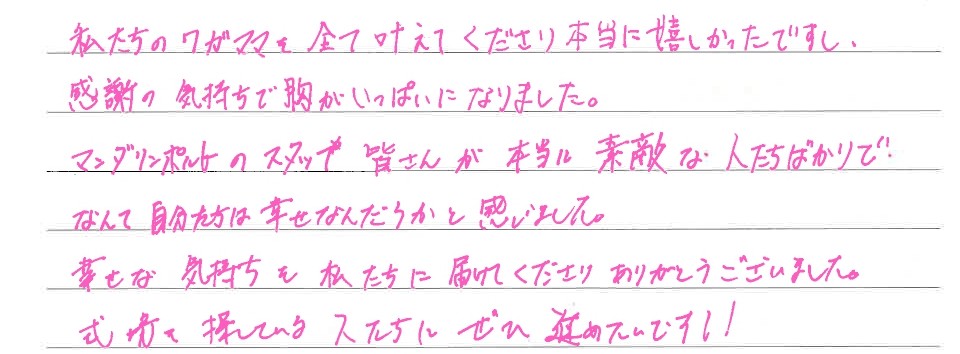 私たちのワガママを全て叶えてくださり本当に嬉しかったですし、
感謝の気持ちで胸がいっぱいになりました。
マンダリンポルトのスタッフ皆さんが本当に素敵な人たちばかりで
なんて自分たちは幸せなんだろうかと感じました。
幸せな気持ちを私たちに届けてくださりありがとうございました。
式場を探している人たちにぜひ進めたいです!!